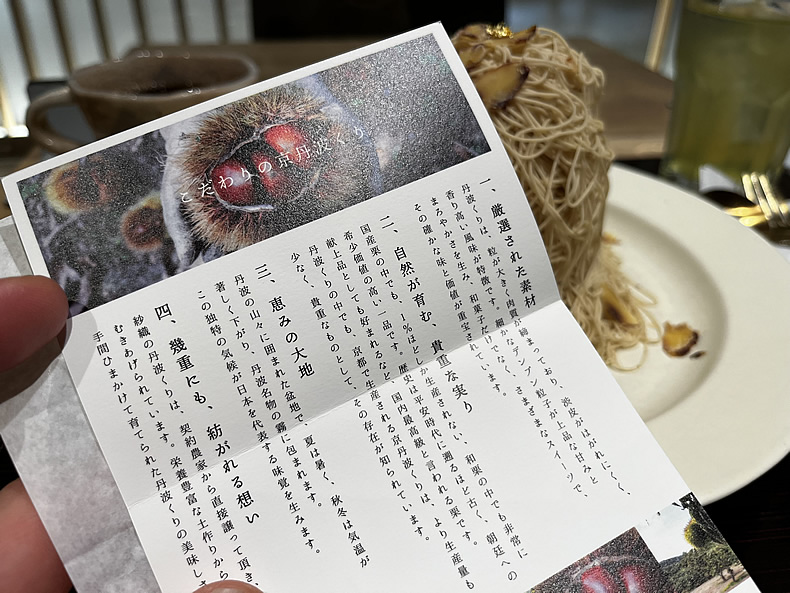 こだわりの京丹波くり
一、厳選された素材
丹波くりは、粒が大きく肉質が締まっており、渋皮がはがれにくく、
香り高い風味が特徴です。細かなデンプン粒子が上品な甘みと
まろやかさを生み、和菓子だけでなく、さまざまなスイーツで、
その確かな味と価値が重宝されています。
二、自然が育む、貴重な実り
国産栗の中でも、1%ほどしか生産されない、和栗の中でも非常に
希少価値の高い一品です。歴史は平安時代に遡るほど古く、朝廷への
献上品としても好まれるなど、国内最高級と言われる栗です。
丹波くりの中でも、京都で生産される京丹波くりは、より生産量も
少なく、貴重なものとして、その存在が知られています。
三、恵みの大地
丹波の山々に囲まれた盆地で、夏は暑く、秋冬は気温が
著しく下がり、丹波名物の霧に包まれます。
この独特の気候が日本を代表する味覚を生みます。
四、幾重にも、紡がれる想い
紗織の丹波くりは、契約農家から直接譲って頂き、
むきあげられています。栄養豊富な土作りから
手間ひまかけて育てられた丹波くりの美味しさ